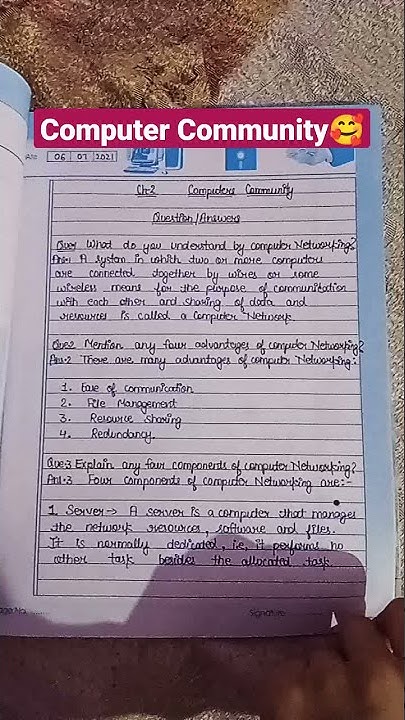 Computer Community🥰
Date 06 07 2021
Ch-2 Computers Community
Question/Answers
Que1 What do you understand by computer Networking?
Ans-1 A system in which two or more computers
are connected together by wires or some
wireless means for the purpose of communication
with each other and sharing of data and
resources is called a Computer Network.
Que2 Mention any four advantages of computer Networking?
Ans.2 There are many advantages of computer Networking:-
1. Ease of communication
2. File Management
3. Resource sharing
4. Redundancy.
Que.3 Explain any four components of computer Networking?
Ans.3 Four components of computer Networking are:-
1. Server→ A server is a computer that manages
the network resources, software and files.
It is normally dedicated, i.e, it performs no
other task besides the allocated task.
Page No.
Signature